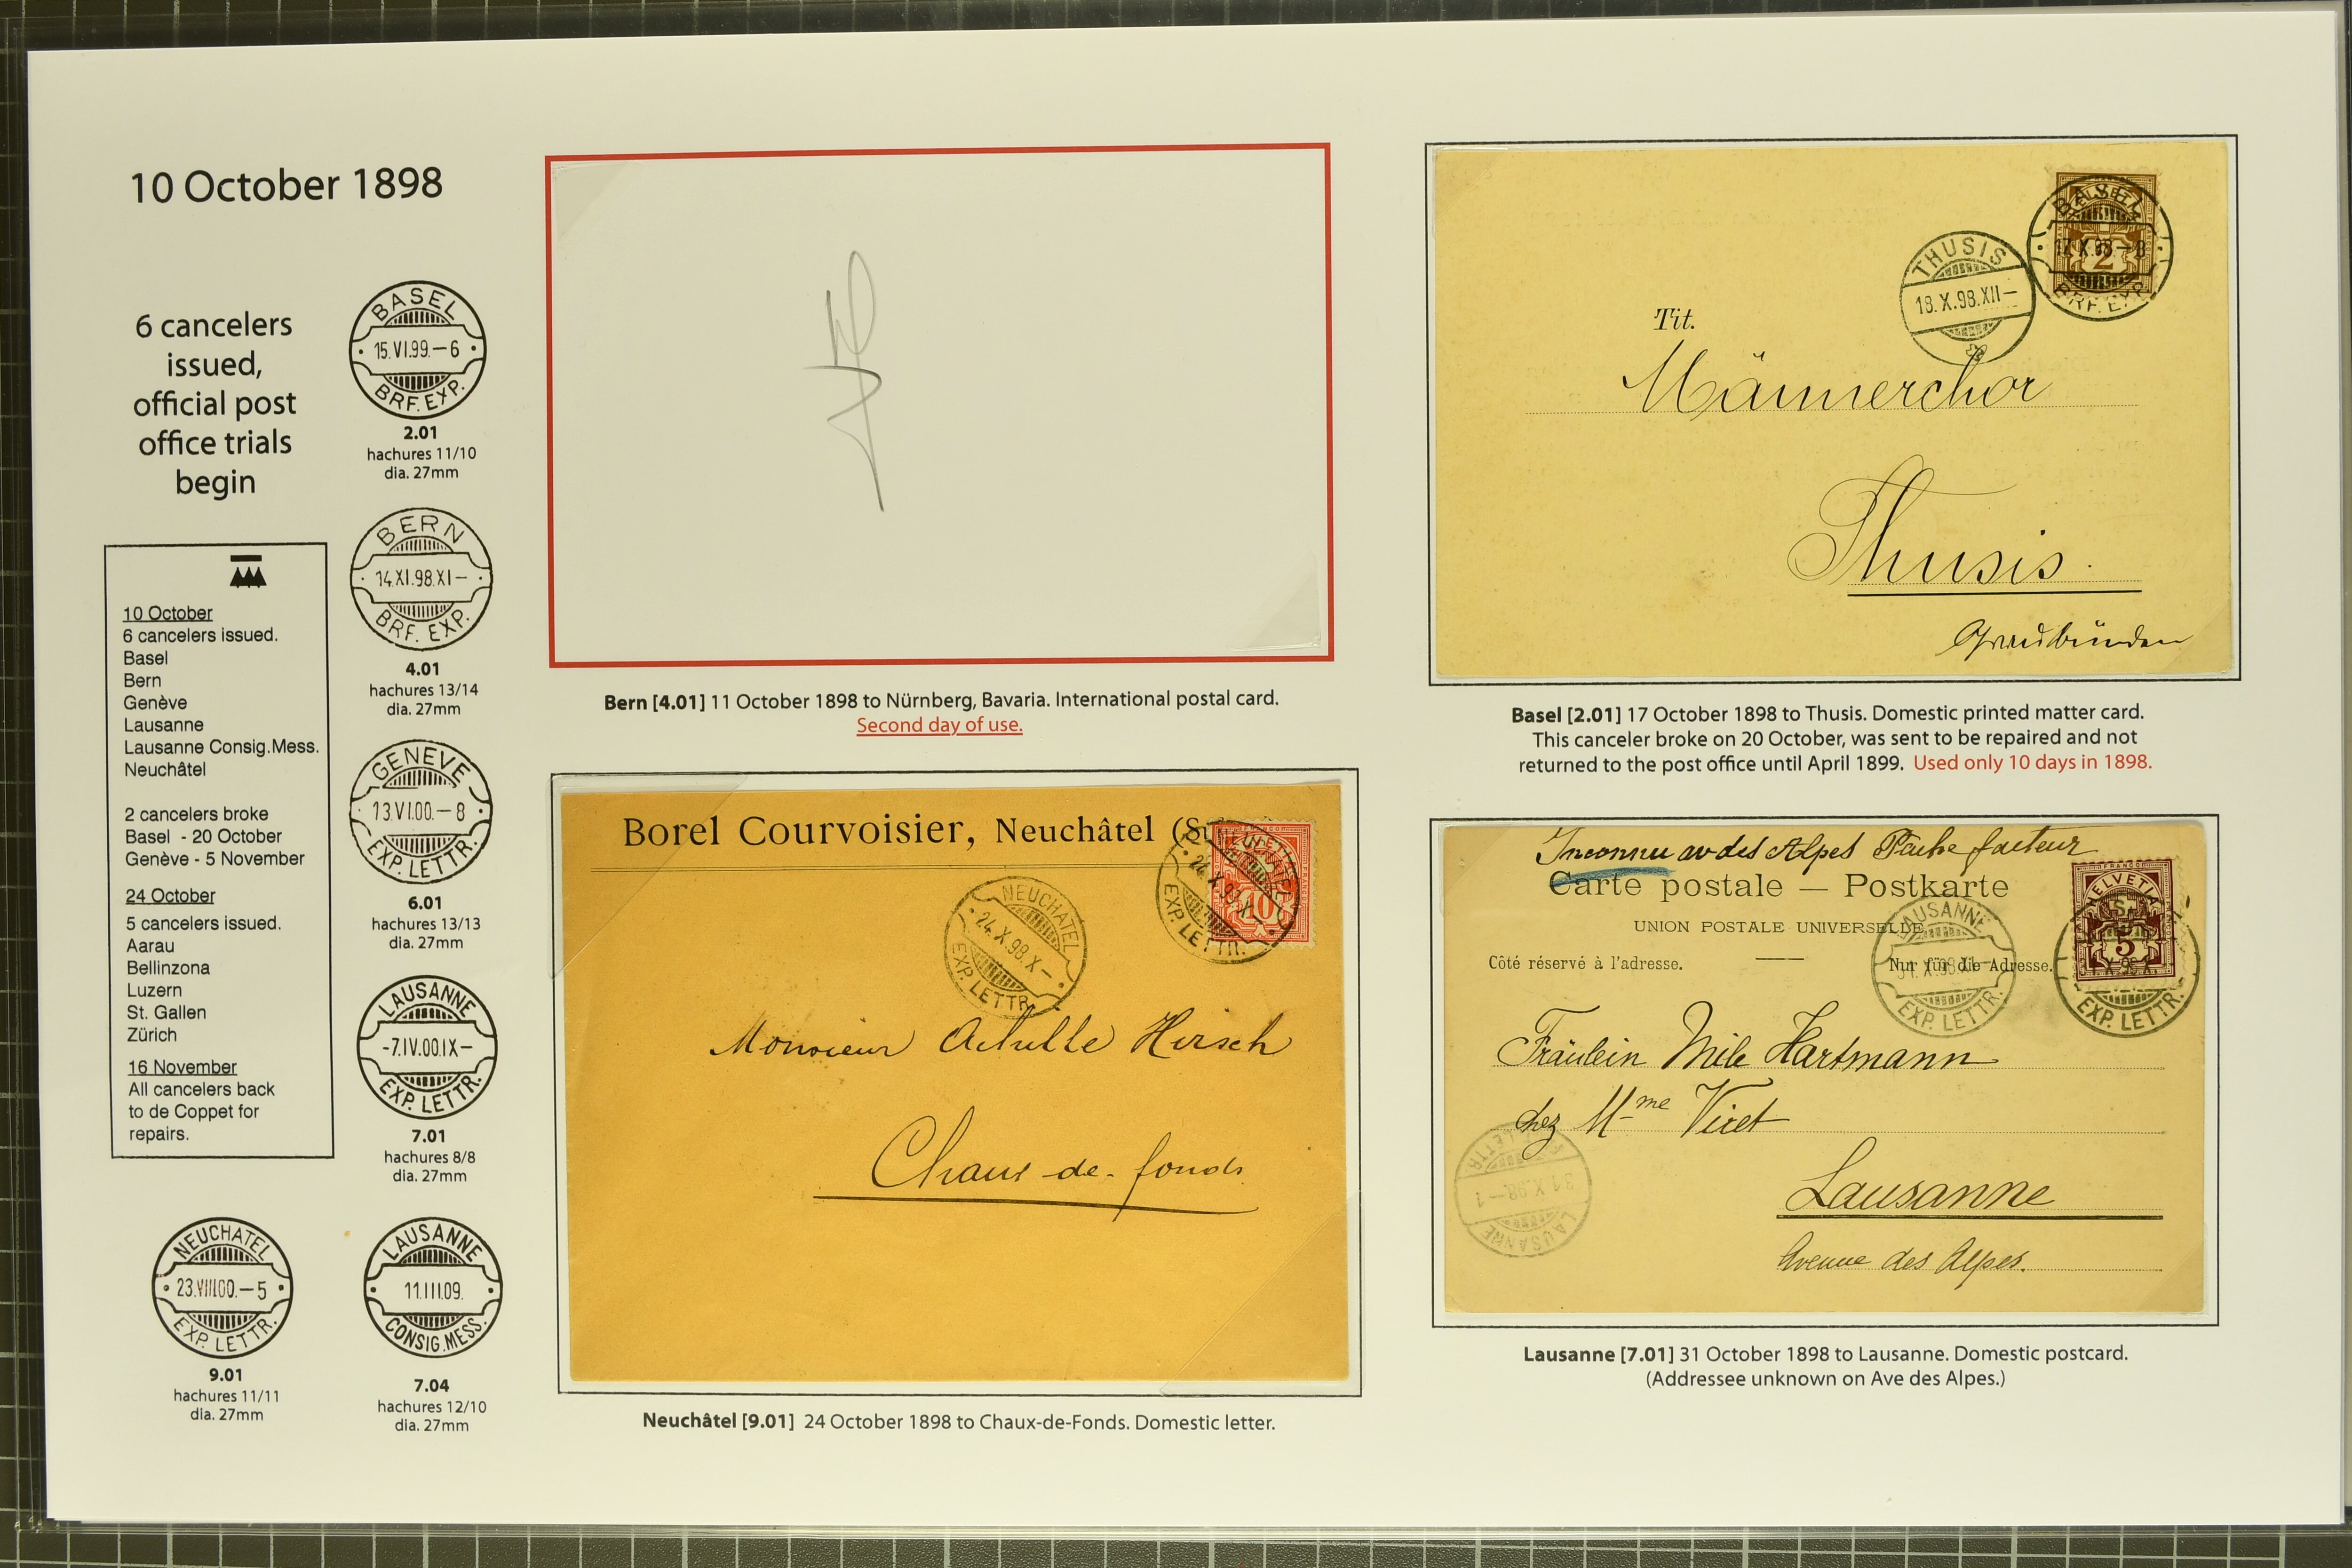 10 October 1898
6 cancelers
issued,
official post
office trials
begin
10 October
6 cancelers issued.
Basel
Bern
Genève
Lausanne
Lausanne Consig.Mess.
Neuchâtel
2 cancelers broke
Basel - 20 October
Genève - 5 November
24 October
5 cancelers issued.
Aarau
Bellinzona
Luzern
St. Gallen
Zürich
16 November
All cancelers back
to de Coppet for
repairs.
BASEL
15.VI.99.–6
BRF. EXP.
2.01
hachures 11/10
dia. 27mm
BERN
14.XI.98.XI–
BRF. EXP.
4.01
hachures 13/14
dia. 27mm
GENEVE
13.VI.00.–8
EXP. LETTR.
6.01
hachures 13/13
dia. 27mm
LAUSANNE
-7.IV.00.IX–
EXP. LETTR.
7.01
hachures 8/8
dia. 27mm
NEUCHATEL
23.VIII.00.–5
EXP. LETTR.
9.01
hachures 11/11
dia. 27mm
LAUSANNE
11.III.09.
CONSIG.MESS.
7.04
hachures 12/10
dia. 27mm
Bern [4.01] 11 October 1898 to Nürnberg, Bavaria. International postal card.
Second day of use.
BASEL
17.X.98.–8
BRF. EXP.
2
THUSIS
18.X.98.XII–
Tit.
Männerchor
Thusis.
Graubünden
Basel [2.01] 17 October 1898 to Thusis. Domestic printed matter card.
This canceler broke on 20 October, was sent to be repaired and not
returned to the post office until April 1899. Used only 10 days in 1898.
Borel Courvoisier, Neuchâtel (S
NEUCHATEL
24.X.98.X–
EXP. LETTR.
10
NEUCHATEL
24.X.98.X–
EXP. LETTR.
Monsieur Achille Hirsch
Chaux-de-fonds.
Neuchâtel [9.01] 24 October 1898 to Chaux-de-Fonds. Domestic letter.
Inconnu av des Alpes facteur
Carte postale — Postkarte
UNION POSTALE UNIVERSELLE
Côté réservé à l'adresse.
Nur für die Adresse.
HELVETIA
5
EXP. LETTR.
LAUSANNE
EXP. LETTR.
Fräulein Mile Hartmann
chez Mme Viret
LAUSANNE
31.X.98.–1
LETTR.
Lausanne
Avenue des Alpes.
Lausanne [7.01] 31 October 1898 to Lausanne. Domestic postcard.
(Addressee unknown on Ave des Alpes.)